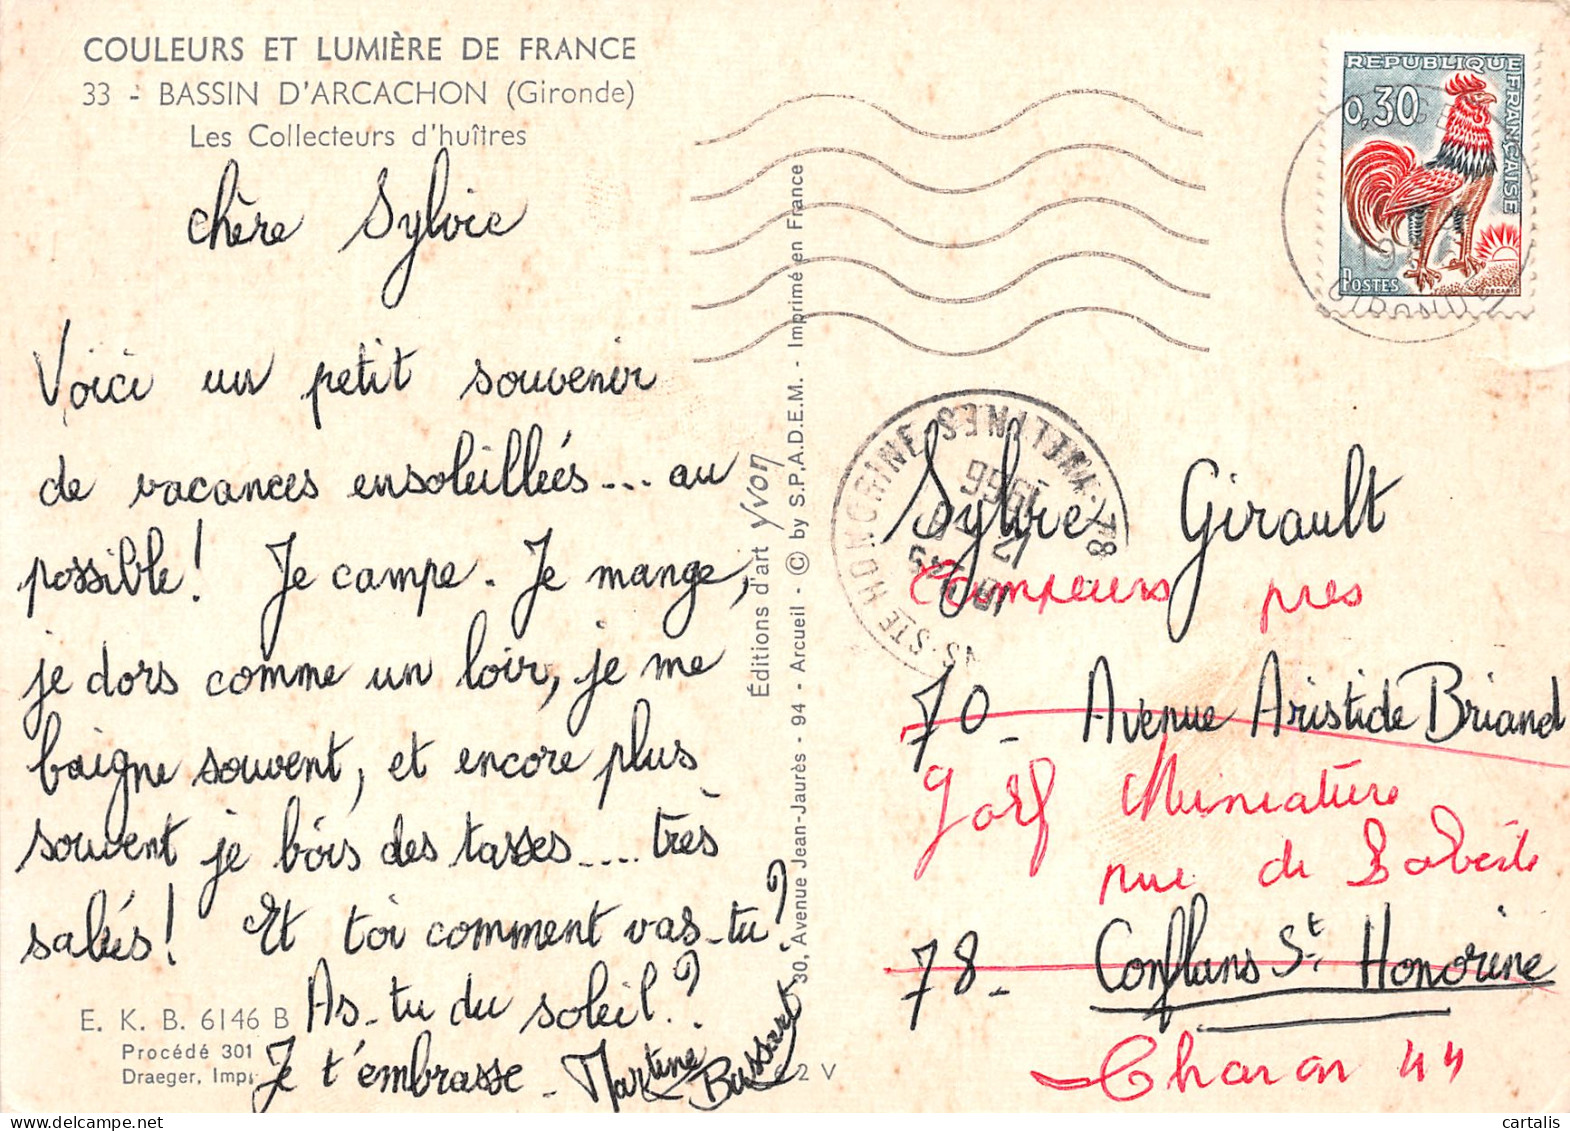 COULEURS ET LUMIÈRE DE FRANCE
33 - BASSIN D'ARCACHON (Gironde)
Les Collecteurs d'huîtres
chère Sylvie
Voici un petit souvenir
de vacances ensoleillées... au
possible! Je campe. Je mange,
je dors comme un loir, je me
baigne souvent, et encore plus
souvent je bois des tasses.... très
salées! Et toi comment vas-tu?
As-tu du soleil?
Je t'embrasse. Martine Bussart
E. K. B. 6146 B
Procédé 301
Draeger, Imp.
2 V
Éditions d'art Yvon
30, Avenue Jean-Jaurès - 94 - Arcueil - © by S.P.A.D.E.M. - Imprimé en France
REPUBLIQUE FRANÇAISE
0,30
POSTES
DECARIS
GIRONDE
STE HONORINE - YVELINES - 78
1966
Sylvie Girault
Campeurs près
70 - Avenue Aristide Briand
Golf Miniature
rue de
78 - Conflans St. Honorine
44
cartalis